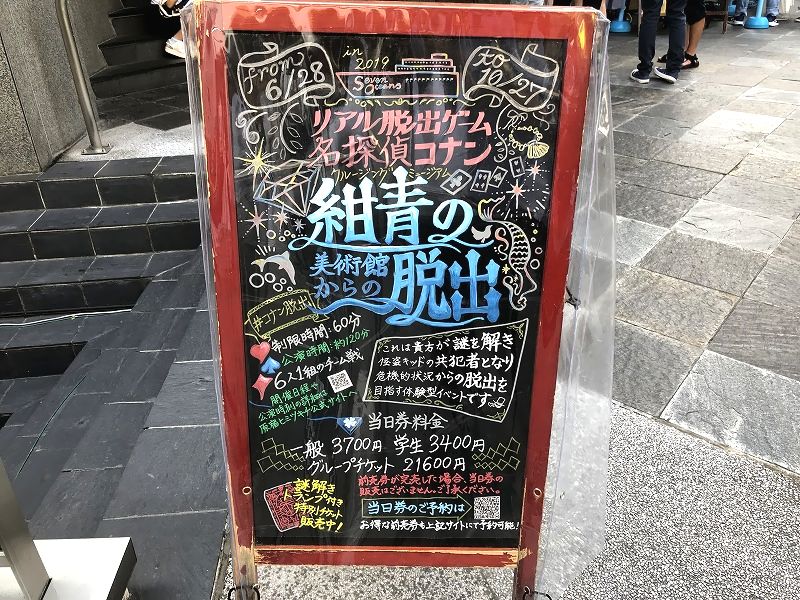 from 6/28
in 2019
Seven Oceans
to 10/27
リアル脱出ゲーム
名探偵コナン
クルージングミュージアム
紺青の
美術館
からの
脱出
#コナン脱出
制限時間:60分
公演時間:約120分
6人1組のチーム戦
開催日程や
公演時刻の詳細は
原宿ヒミツキチ公式サイトへ
これは貴方が謎を解き
怪盗キッドの共犯者となり
危機的状況からの脱出を
目指す体験型イベントです。
当日券料金
一般 3700円 学生 3400円
グループチケット 21600円
謎解き
トランプ付き
特別チケット
販売中!
前売券が完売した場合、当日券の
販売はございません。ご了承ください。
当日券のご予約は
お得な前売券も上記サイトにて予約可能!